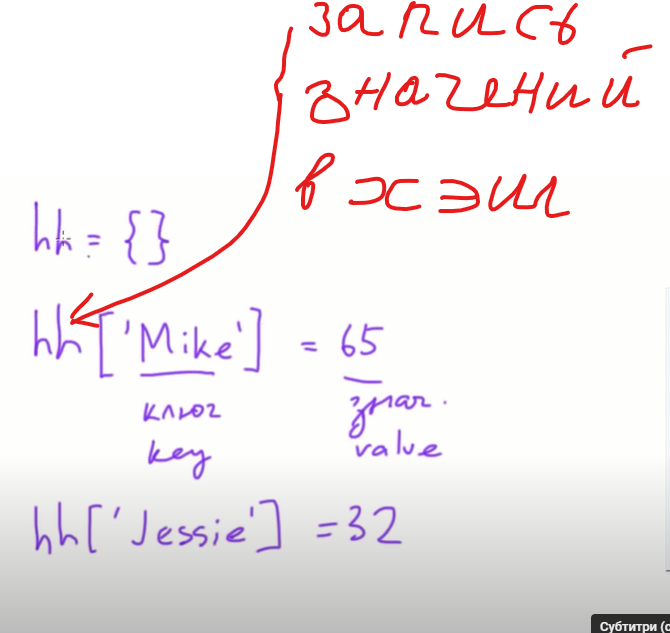 запись
значений
в хэш
hh = {}
hh['Mike'] = 65
ключ знач.
key value
hh['Jessie'] = 32
Субтитри (c